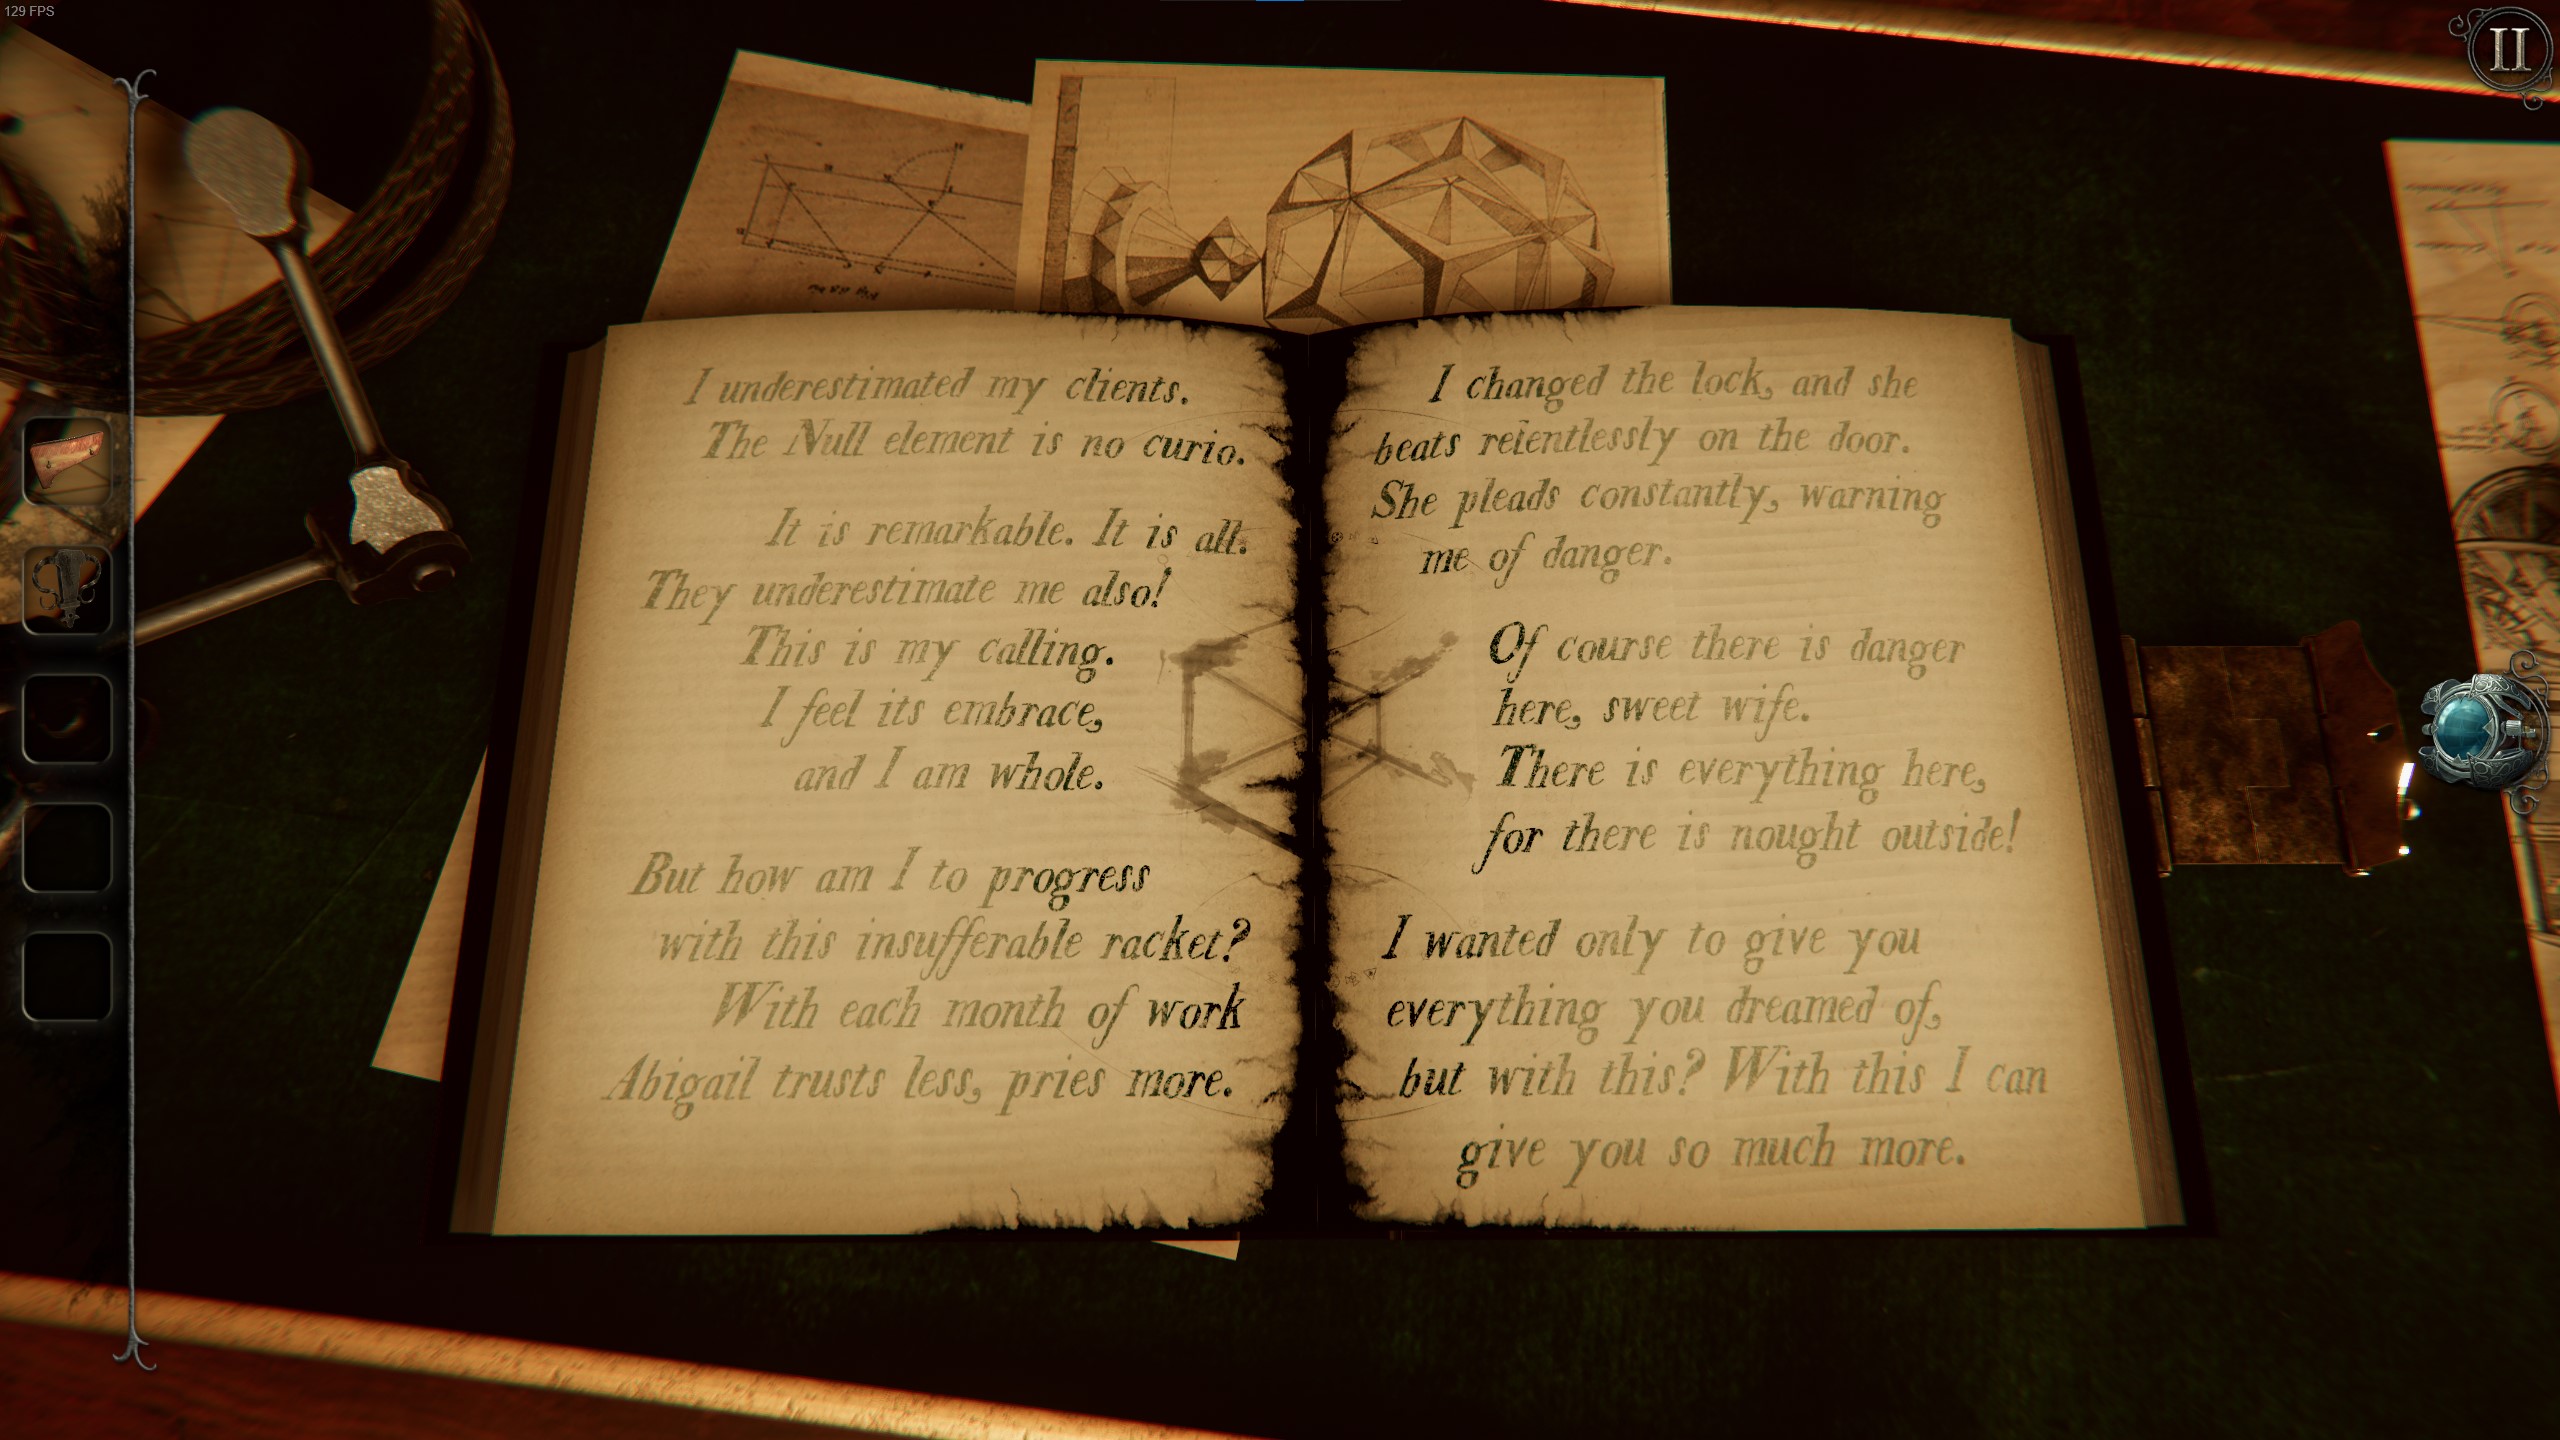 129 FPS
II
I underestimated my clients.
The Null element is no curio.
It is remarkable. It is all.
They underestimate me also!
This is my calling.
I feel its embrace,
and I am whole.
But how am I to progress
with this insufferable racket?
With each month of work
Abigail trusts less, pries more.
I changed the lock, and she
beats relentlessly on the door.
She pleads constantly, warning
me of danger.
Of course there is danger
here, sweet wife.
There is everything here,
for there is nought outside!
I wanted only to give you
everything you dreamed of,
but with this? With this I can
give you so much more.